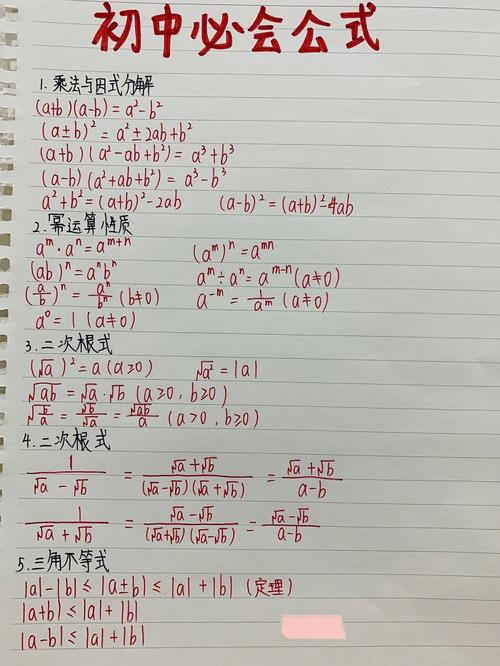 初中必会公式
1. 乘法与因式分解
(a+b)(a-b)=a²-b²
(a±b)²=a²±2ab+b²
(a+b)(a²-ab+b²)=a³+b³
(a-b)(a²+ab+b²)=a³-b³
a²+b²=(a+b)²-2ab (a-b)²=(a+b)²-4ab
2. 幂运算性质
aᵐ·aⁿ=aᵐ⁺ⁿ (aᵐ)ⁿ=aᵐⁿ
(ab)ⁿ=aⁿbⁿ aᵐ÷aⁿ=aᵐ⁻ⁿ(a≠0)
(a/b)ⁿ=aⁿ/bⁿ(b≠0) a⁻ᵐ=1/aᵐ(a≠0)
a⁰=1(a≠0)
3. 二次根式
(√a)²=a(a≥0) √a²=|a|
√ab=√a·√b(a≥0,b≥0)
√(b/a)=√b/√a=√ab/a(a>0,b≥0)
4. 二次根式
1/(√a-√b)=(√a+√b)/((√a-√b)(√a+√b))=(√a+√b)/(a-b)
1/(√a+√b)=(√a-√b)/((√a+√b)(√a-√b))=(√a-√b)/(a-b)
5. 三角不等式
|a|-|b|≤|a±b|≤|a|+|b|(定理)
|a+b|≤|a|+|b|
|a-b|≤|a|+|b|